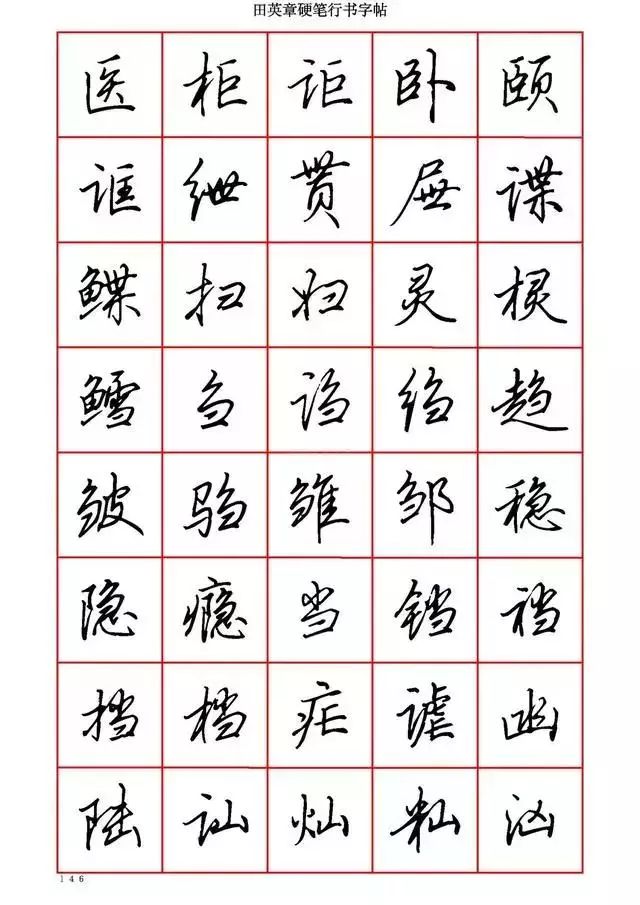 田英章硬笔行书字帖
医柜讵卧颐
诓绁贳屉谍
鲽扫妇灵棂
鳕刍诌绉趋
皱驺雏邹稳
隐瘾当铛裆
挡档疟谑幽
陆讪灿籼汹
146